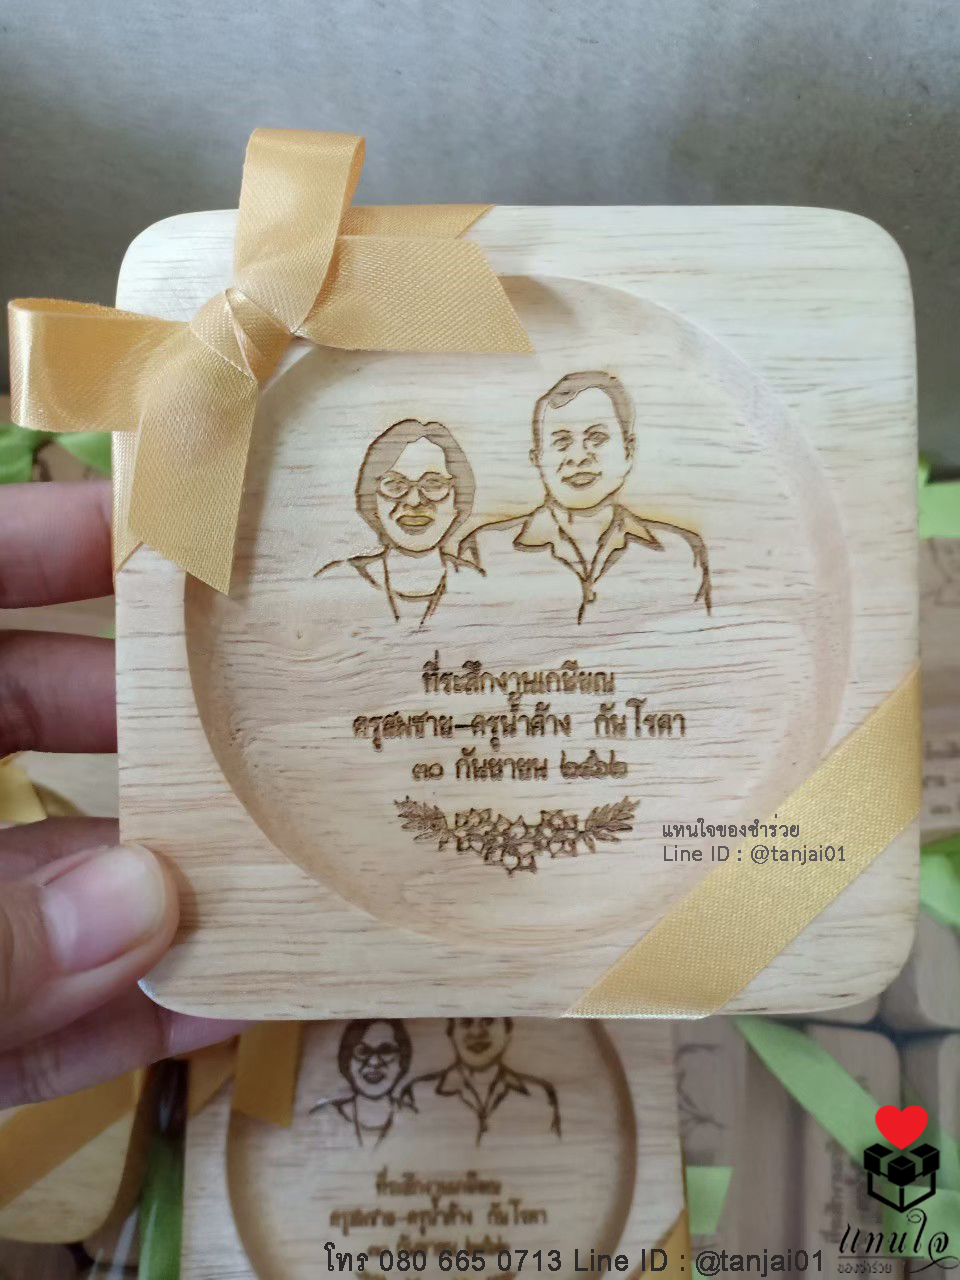 ที่ระลึกงานเกษียณ
ครูสมชาย-ครูน้ำค้าง กันโรคา
๓๐ กันยายน ๒๕๖๒
แทนใจของชำร่วย
Line ID : @tanjai01
ที่ระลึกงานเกษียณ
ครูสมชาย-ครูน้ำค้าง กันโรคา
แทนใจ
ของชำร่วย
โทร 080 665 0713 Line ID : @tanjai01